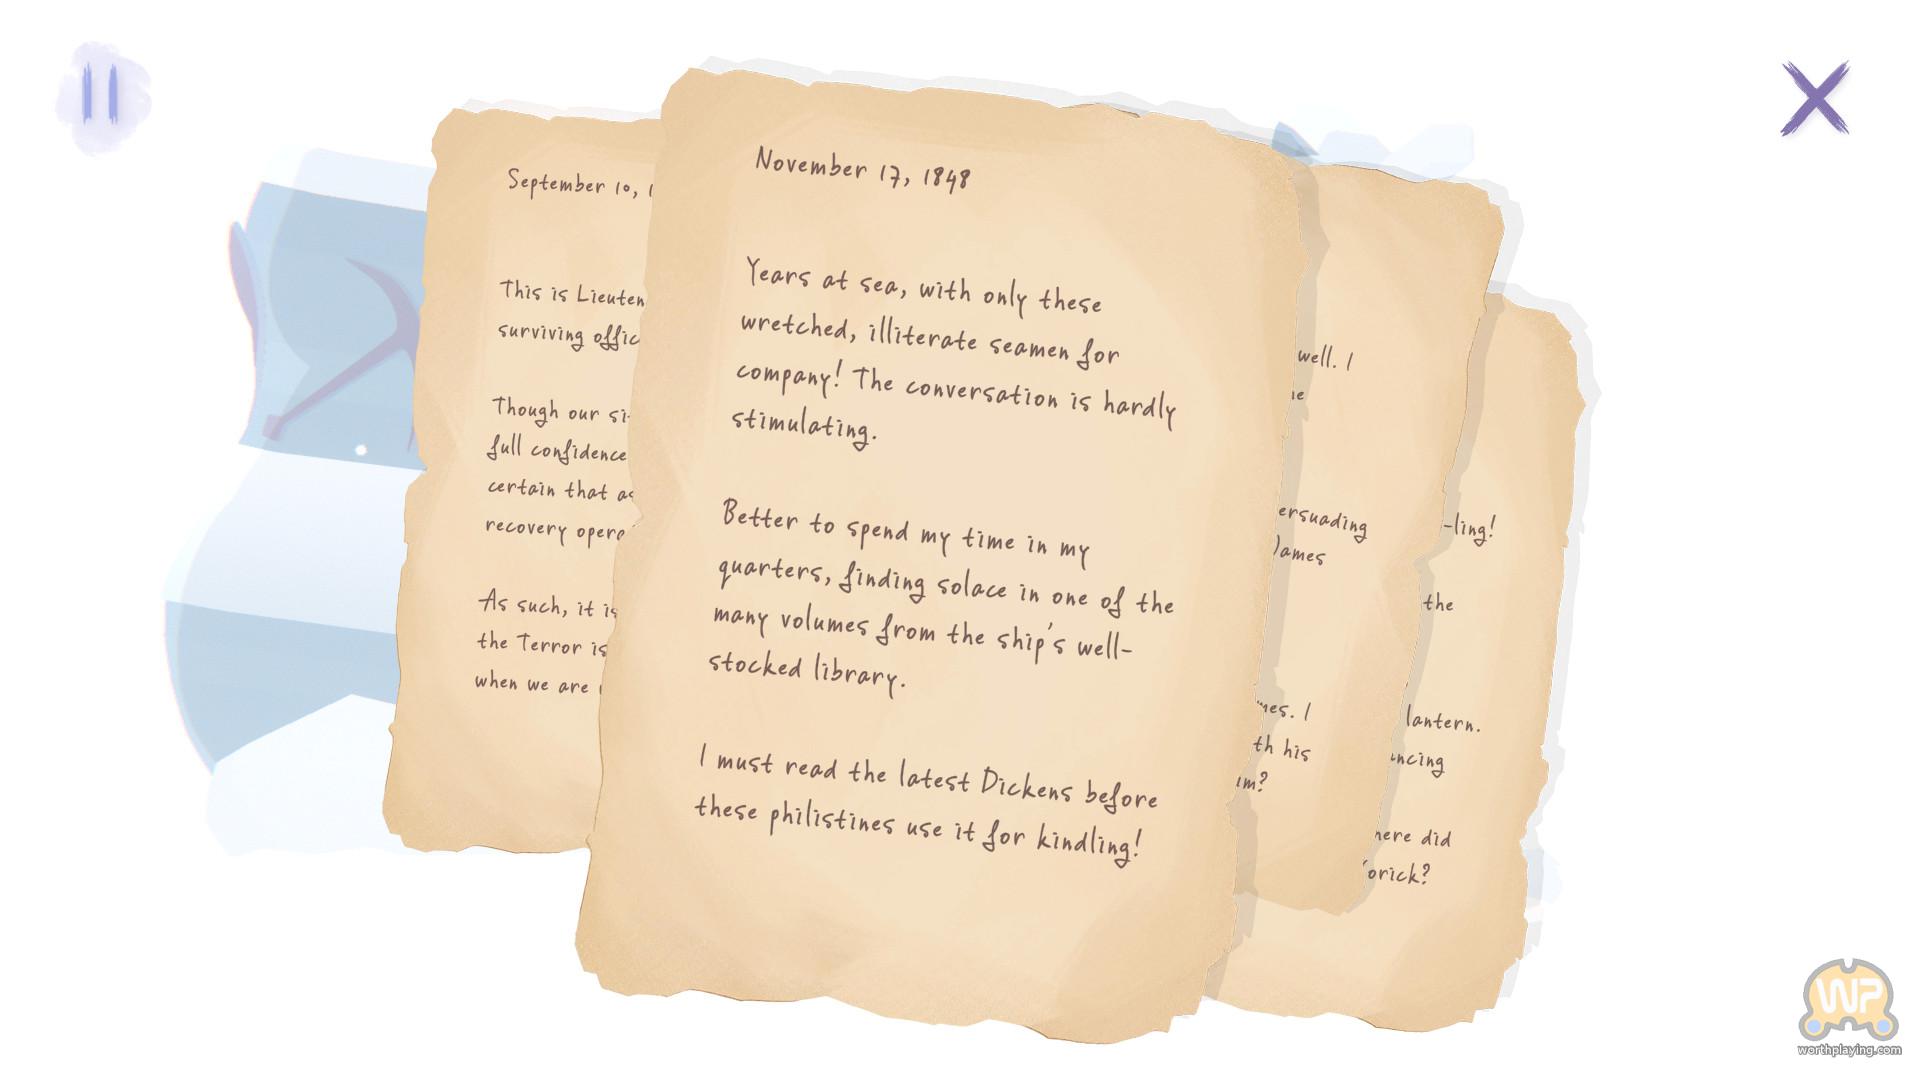 September 10,
This is
surviving
Though our
full confidence
certain that
recovery
As such, it is
the Terror is
when we are
November 17, 1848
Years at sea, with only these
wretched, illiterate seamen for
company! The conversation is hardly
stimulating.
Better to spend my time in my
quarters, finding solace in one of the
many volumes from the ship's well-
stocked library.
I must read the latest Dickens before
these philistines use it for kindling!
well. I
James
I
his
-ling!
the
lantern.
did
WP
worthplaying.com